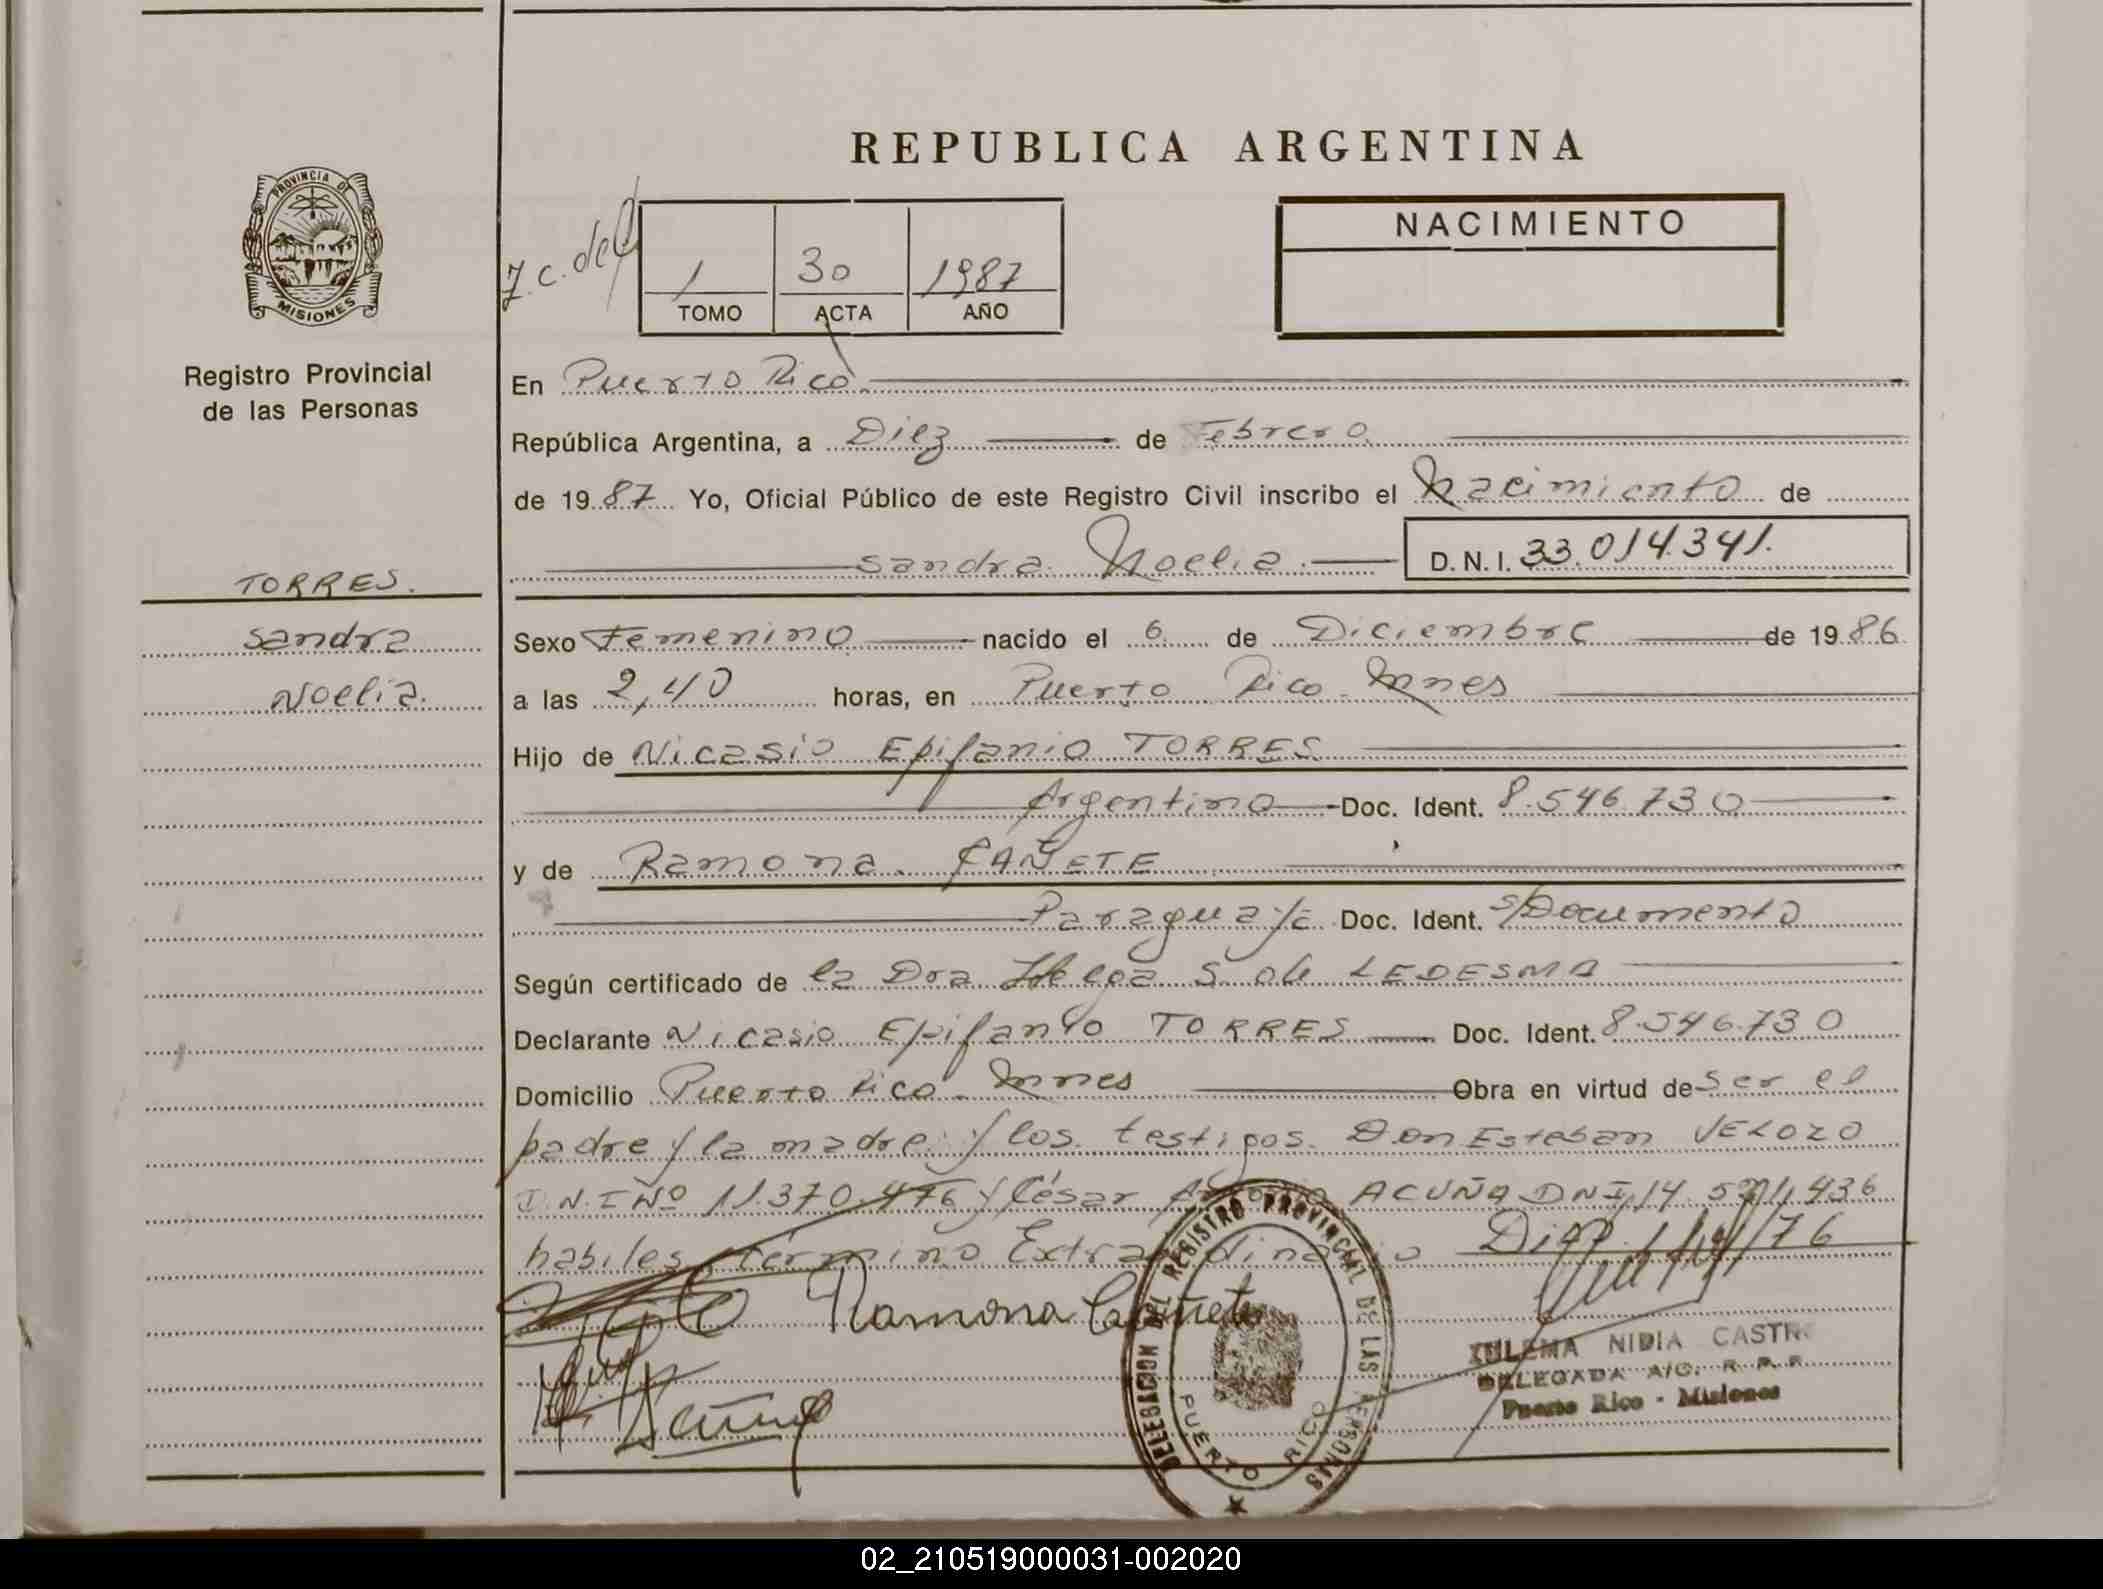 REPUBLICA ARGENTINA
PROVINCIA DE
MISIONES
Registro Provincial
de las Personas
1 30 1987
TOMO ACTA AÑO
NACIMIENTO
En Puerto Rico
República Argentina, a Diez de Febrero
de 1987 Yo, Oficial Público de este Registro Civil inscribo el Nacimiento de
Sandra Noelia D.N.I. 33.014.341.
TORRES.
Sandra
Noelia.
Sexo Femenino nacido el 6 de Diciembre de 1986
a las 2,40 horas, en Puerto Rico Mnes
Hijo de Nicasio Epifanio TORRES
Argentino Doc. Ident. 8.546.730
y de Ramona CAÑETE
Paraguaya Doc. Ident. s/Documento
Según certificado de la Dra Helga S. de LEDESMA
Declarante Nicasio Epifanio TORRES Doc. Ident. 8.546.730
Domicilio Puerto Rico. Mnes Obra en virtud de ser el
padre y la madre y los testigos Don Esteban VELOZO
D.N.I Nº 11.370.476 y César ACUÑA DNI 14. 436
habiles, término Extraordinario
Ramona Cañete
Acuña
DELEGACION DEL REGISTRO PROVINCIAL DE LAS PERSONAS
PUERTO RICO
ZULEMA NIDIA CASTRO
DELEGADA A/C. R. P. P.
Puerto Rico - Misiones
02_210519000031-002020